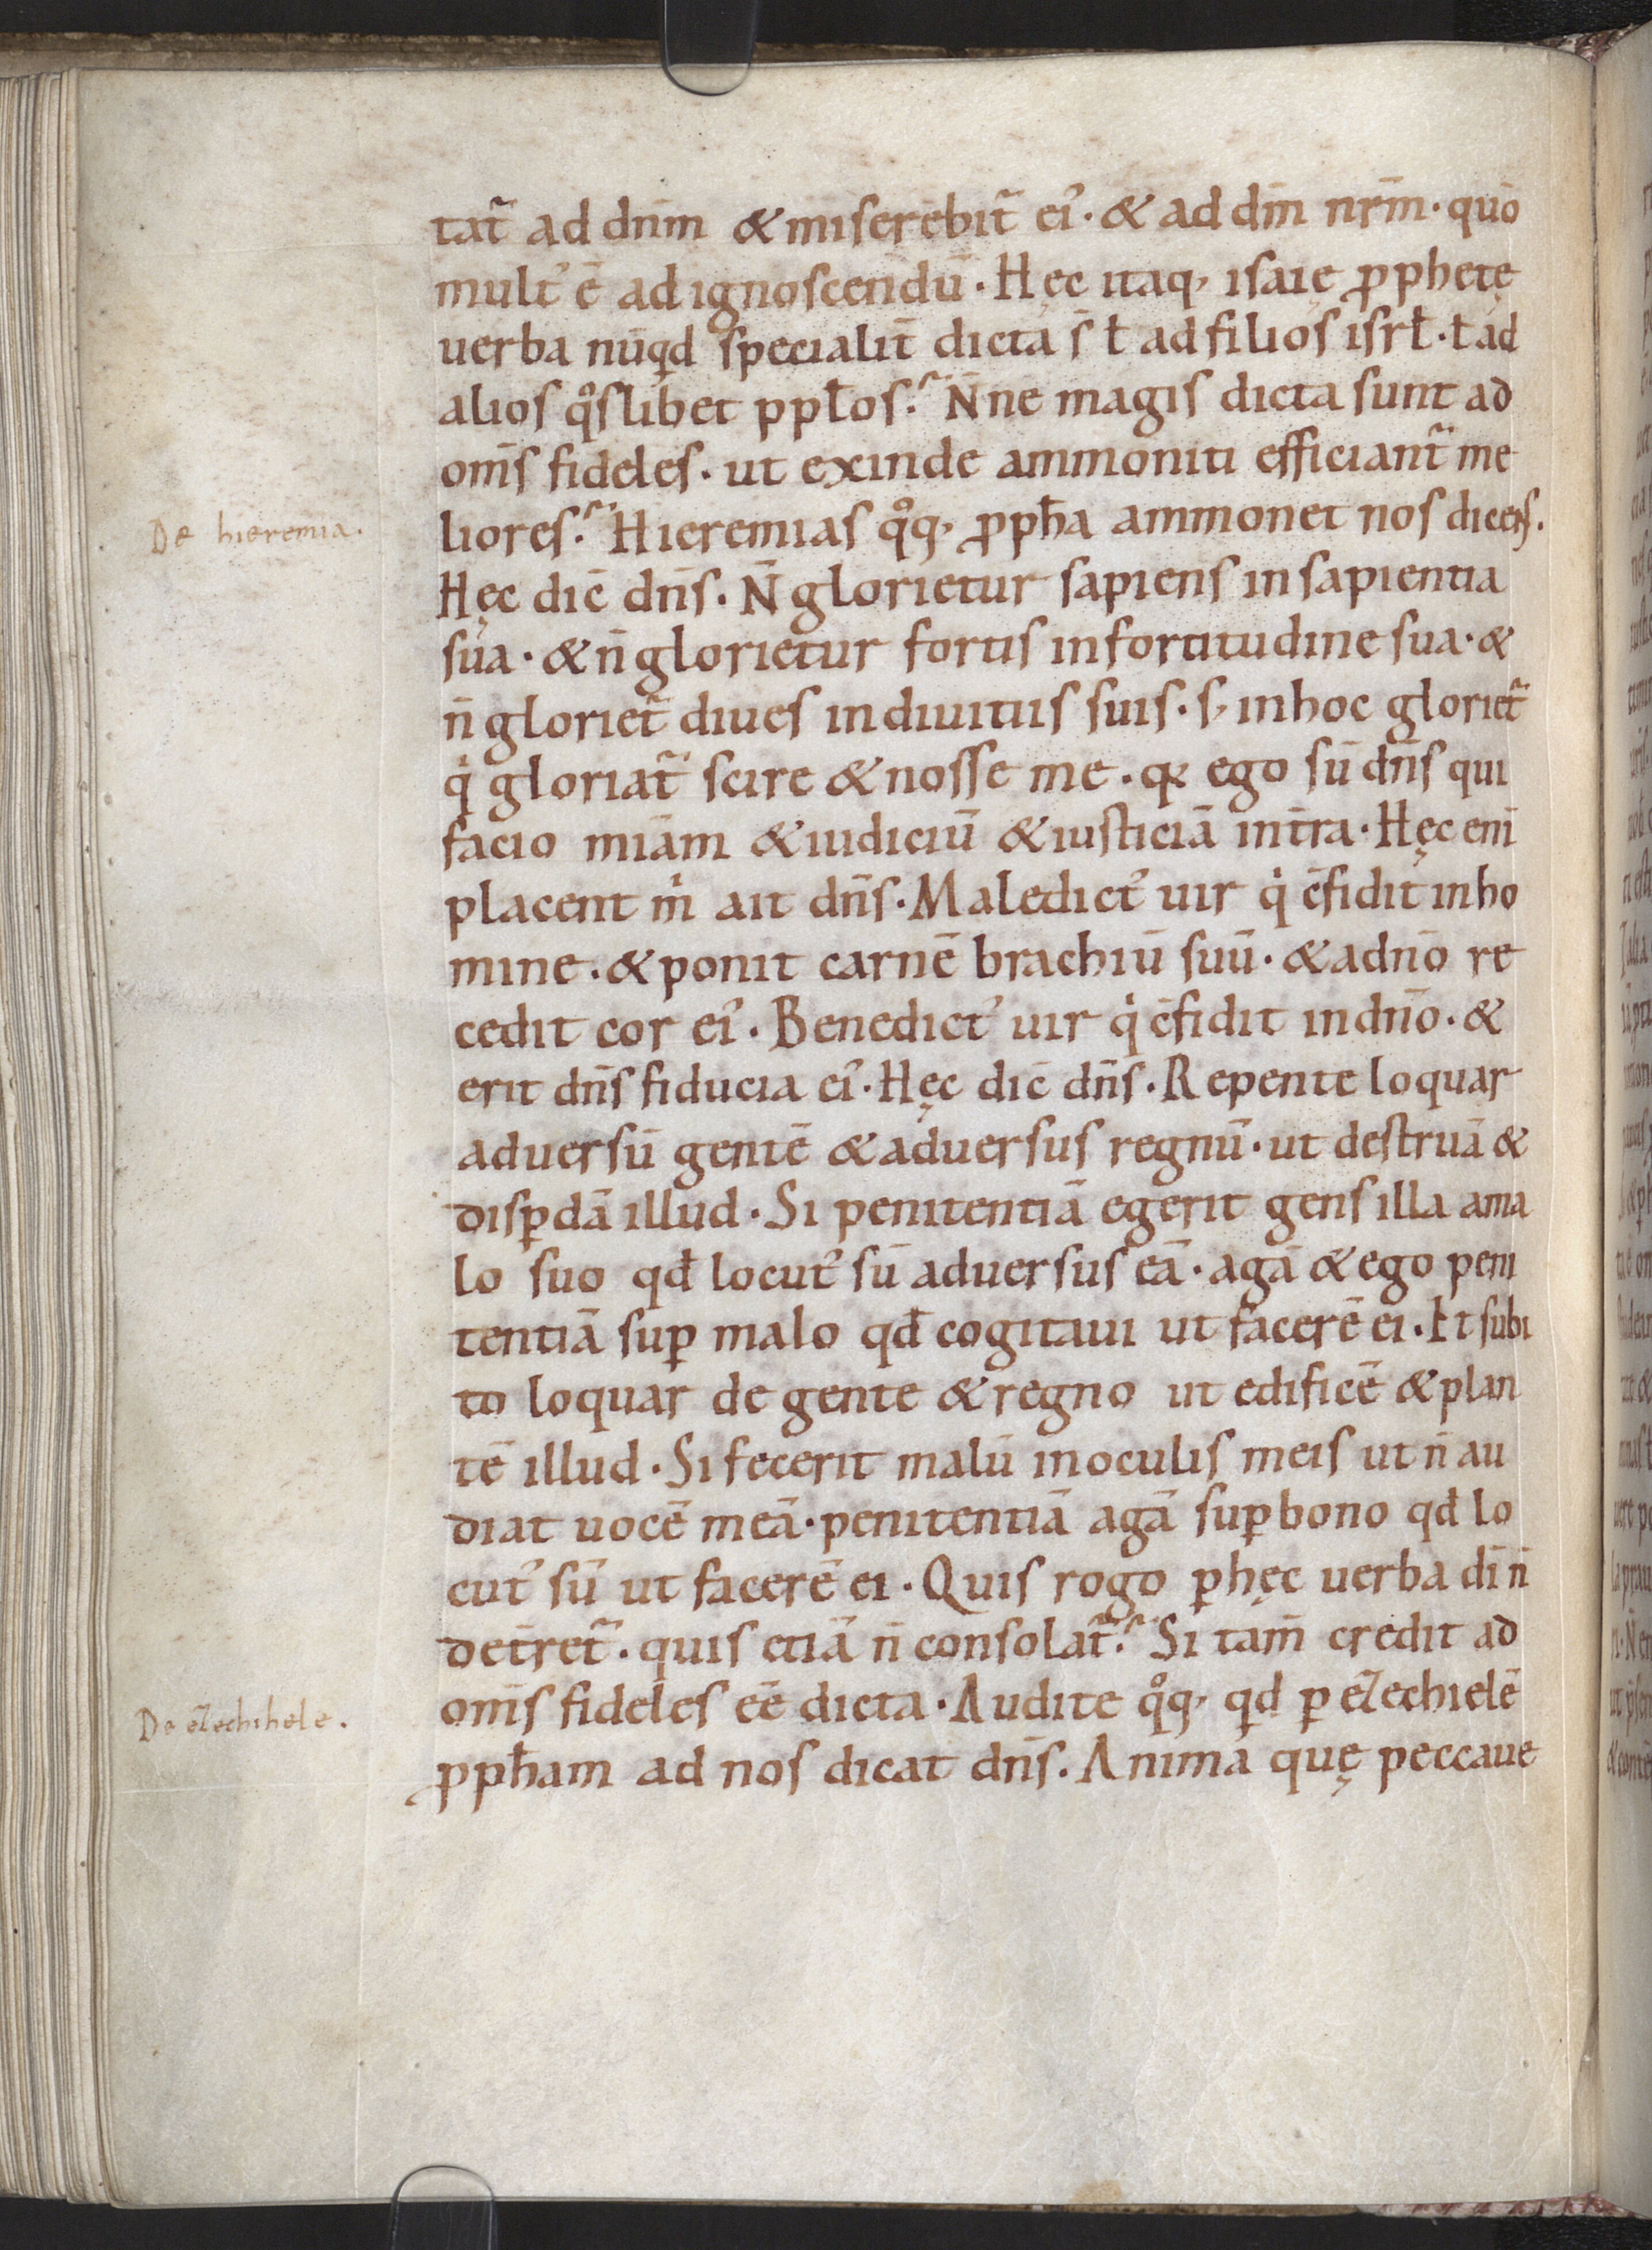 tat᷑ ad dnm̄ & miserebit᷑ ei᷒ · & ad dm̄ nrm̄ · quō
mult᷒ ē ad ignoscendū · Hęc itaq, isaie ꝓphetę
uerba nūqd specialit̄ dicta s̄ ł ad filios isrł · ł ad
alios qͦslibet ppłos? N̄ne magis dicta sunt ad
om̄s fideles · ut exinde ammoniti efficiant᷑ me
De hieremia.
liores? Hieremias qͦq, ꝓpħa ammonet nos dicens.
Hęc dic̄ dn̄s. N̄ glorietur sapiens in sapientia
sua · & n̄ glorietur fortis in fortitudine sua · &
n̄ gloriet᷑ diues in diuitiis suis · s, in hoc gloriet᷑
qͥ gloriat᷑ scire & nosse me · qꝛ ego sū dn̄s qui
facio miām & iudiciū & iusticiā in tr̄a · Hęc eni
placent mͥ ait dn̄s · Maledict᷒ uir qͥ c̄fidit in ho
mine · & ponit carnē brachiū suū · & a dn̄o re
cedit cor ei᷒ · Benedict᷒ uir qͥ c̄fidit in dn̄o · &
erit dn̄s fiducia ei᷒ · Hęc dic̄ dn̄s · Repente loquar
aduersū gentē & aduersus regnū · ut destruā &
disꝑdā illud · Si penitentiā egerit gens illa a ma
lo suo qđ locut᷒ sū aduersus eā · agā & ego peni
tentiā suꝑ malo qđ cogitaui ut facerē ei · Et subi
to loquar de gente & regno ut edificē & plan
tē illud · Si fecerit malū in oculis meis ut n̄ au
diat uocē meā · penitentiā agā suꝑ bono qđ lo
cut᷒ sū ut facerē ei · Quis rogo ꝑ hęc uerba dī n̄
det̄ret᷑ · quis etiā n̄ consolat᷑? Si tam̄ credit ad
De ezechihele.
om̄s fideles eē dicta · Audite qͦq, qd ꝑ ezechielē
ꝓpħam ad nos dicat dn̄s. Anima quę peccaue